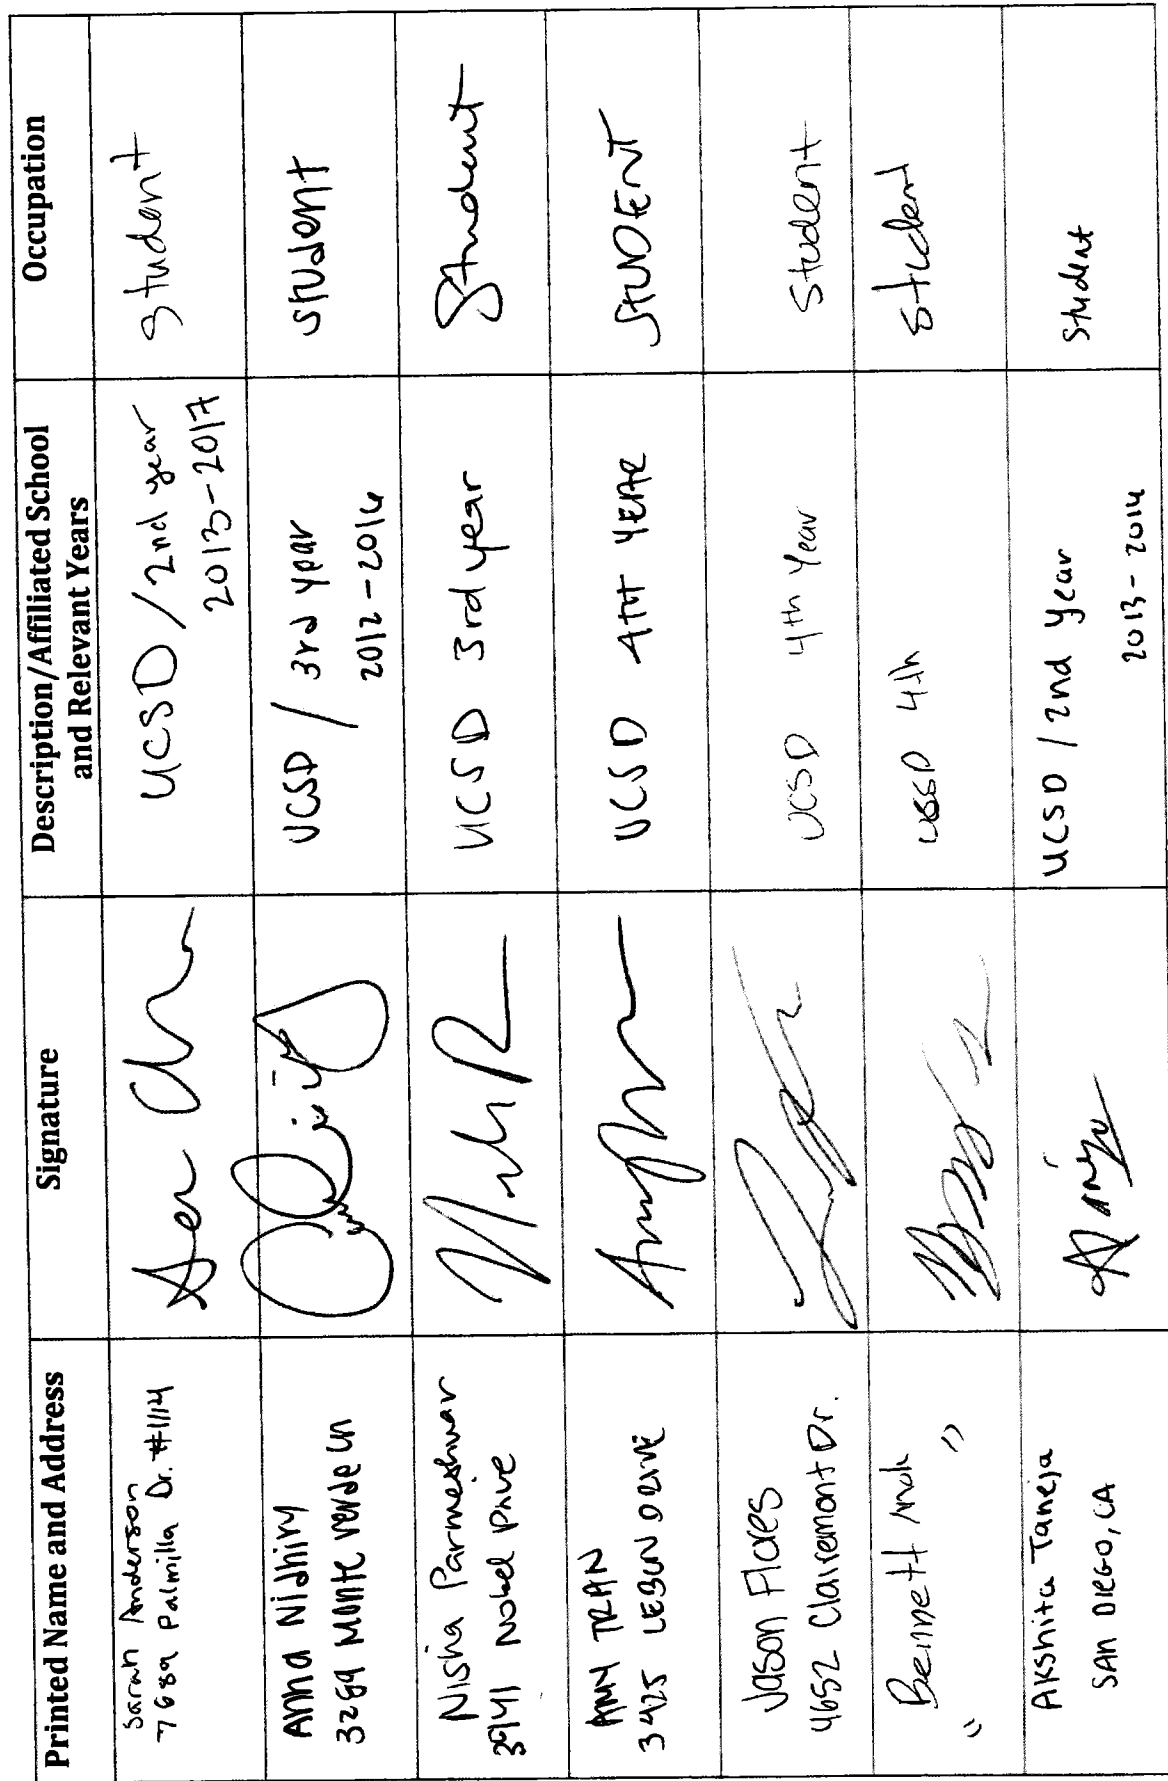 Printed Name and Address
Signature
Description/Affiliated School
and Relevant Years
Occupation
Sarah Anderson
7689 Palmilla Dr. #1114
UCSD / 2nd year
2013-2017
Student
Anna Nidhiry
3289 Monte Verde Ln
UCSD / 3rd year
2012-2016
Student
Nisha Parmeshwar
3941 Nobel Drive
UCSD 3rd year
Student
AMY TRAN
3425 LEBON DRIVE
UCSD 4TH YEAR
STUDENT
Jason Flores
4652 Clairemont Dr.
UCSD 4th Year
Student
Bennett
" "
UCSD 4th
Student
Akshita Taneja
SAN DIEGO, CA
UCSD / 2nd Year
2013-2014
Student